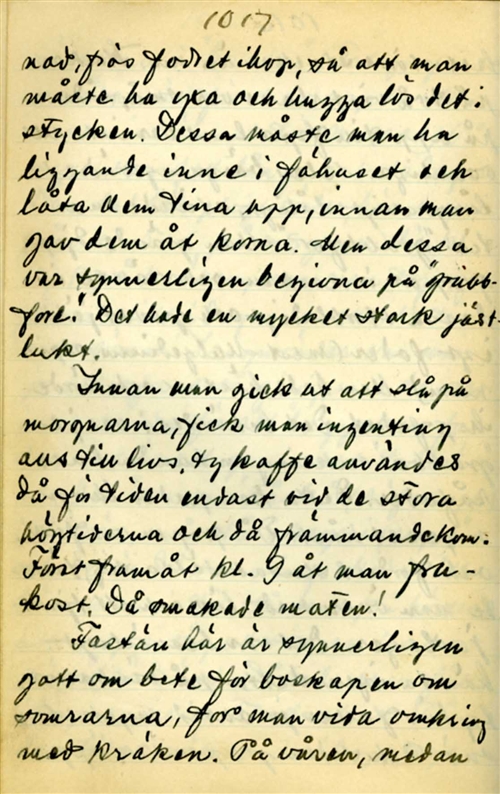 1017
nad, frös fodret ihop, så att man
måste ha yxa och hugga lös det i
stycken. Dessa måste man ha
liggande inne i fähuset och
låta dem tina upp, innan man
gav dem åt korna. Men dessa
var synnerligen begivna på "grubb-
fore". Det hade en mycket stark jäst-
lukt.
Innan man gick ut att slå på
morgnarna, fick man ingenting
alls till livs, ty kaffe användes
då för tiden endast vid de stora
högtiderna och då främmande kom.
Först framåt kl. 9 åt man fru-
kost. Då smakade maten!
Fastän här är synnerligen
gott om bete för boskapen om
somrarna, for man vida omkring
med kräken. På våren, medan